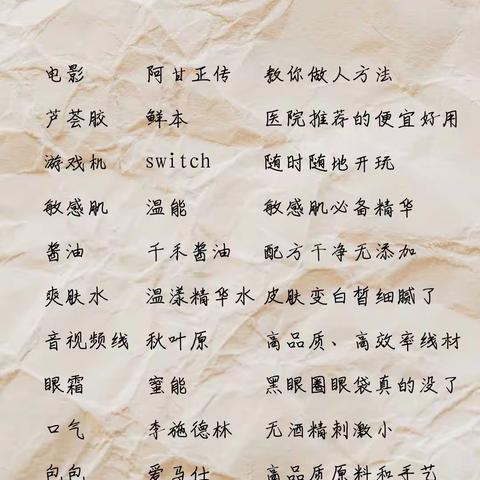 电影 阿甘正传 教你做人方法
芦荟胶 鲜本 医院推荐的便宜好用
游戏机 switch 随时随地开玩
敏感肌 温能 敏感肌必备精华
酱油 千禾酱油 配方干净无添加
爽肤水 温漾精华水 皮肤变白皙细腻了
音视频线 秋叶原 高品质、高效率线材
眼霜 蜜能 黑眼圈眼袋真的没了
口气 李施德林 无酒精刺激小
包包 爱马仕 高品质原料和手艺